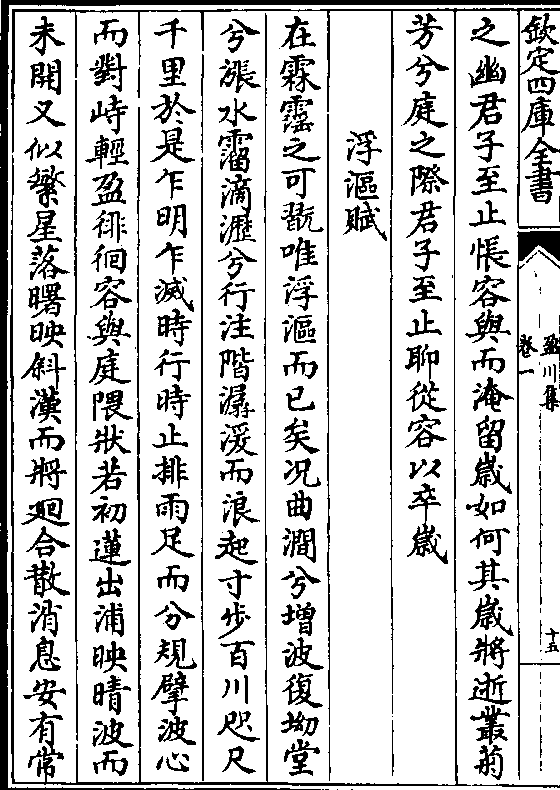 欽定四庫全書
盈川集
卷一
十五
之幽君子至止悵容與而淹留歲如何其歲將逝叢菊
芳兮庭之際君子至止聊從容以卒歲
浮漚賦
在霖霪之可翫唯浮漚而已矣况曲澗兮增波復坳堂
兮漲水霤滴瀝兮行注階潺湲而浪起寸步百川咫尺
千里於是乍明乍滅時行時止排雨足而分規擘波心
而對峙輕盈徘徊容與庭隈狀若初蓮出浦映晴波而
未開又似繁星落曙映斜漢而將廻合散消息安有常